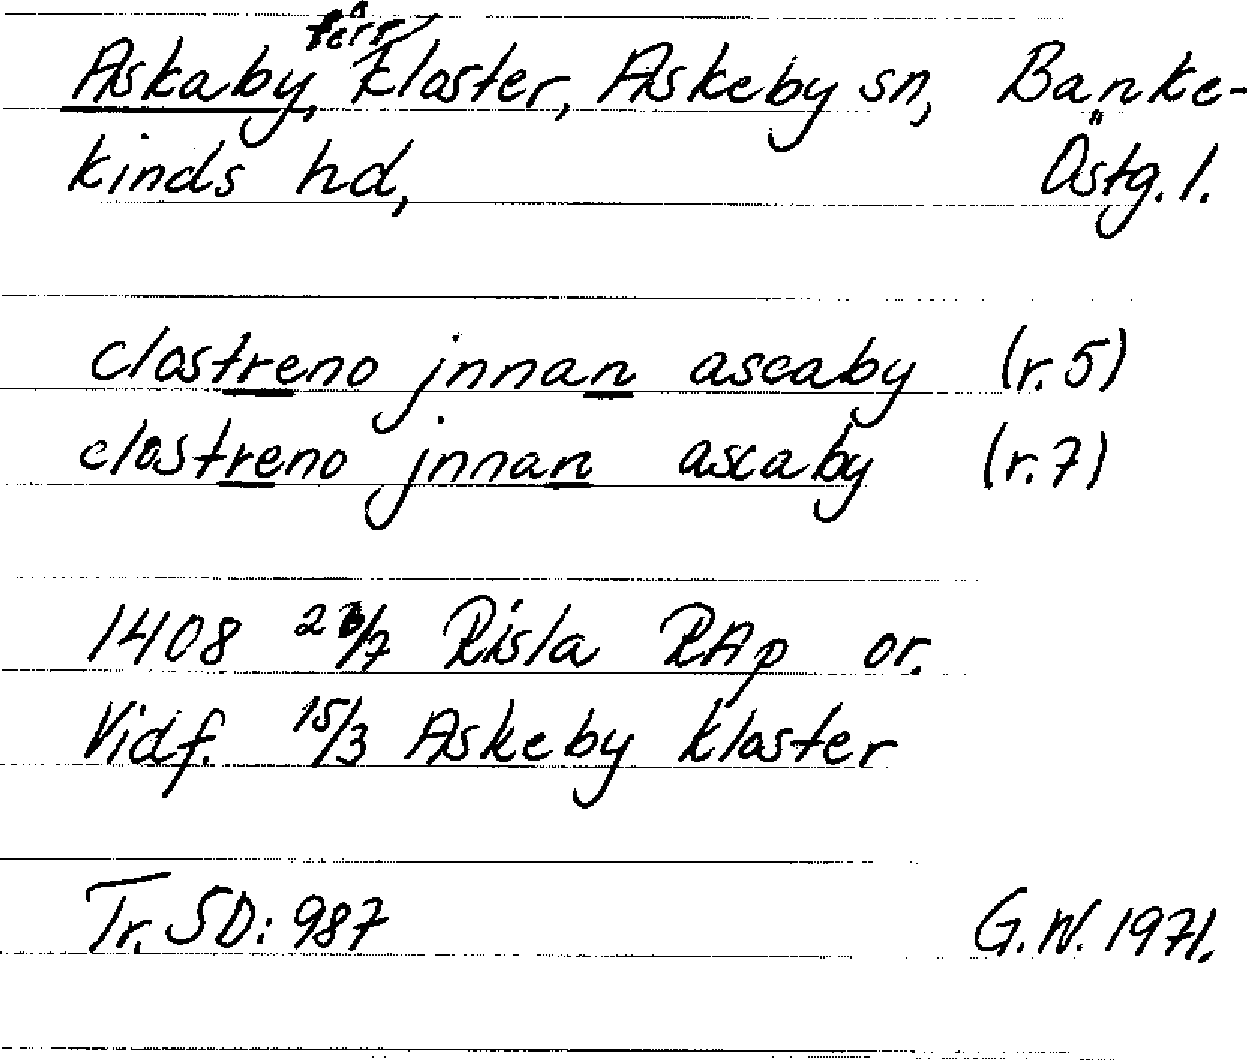 Askaby, förr kloster, Askeby sn, Banke-
kinds hd, Östg. l.
clostreno jnnan ascaby (r. 5)
clostreno jnnan ascaby (r. 7)
1408 /7 Risla RAp or.
Vidf. 15/3 Askeby kloster
Tr. SD: 987 G. W. 1971.